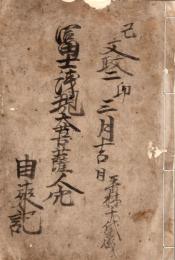 文政二己卯三月吉日
冨士浅間大菩薩人穴
由来記